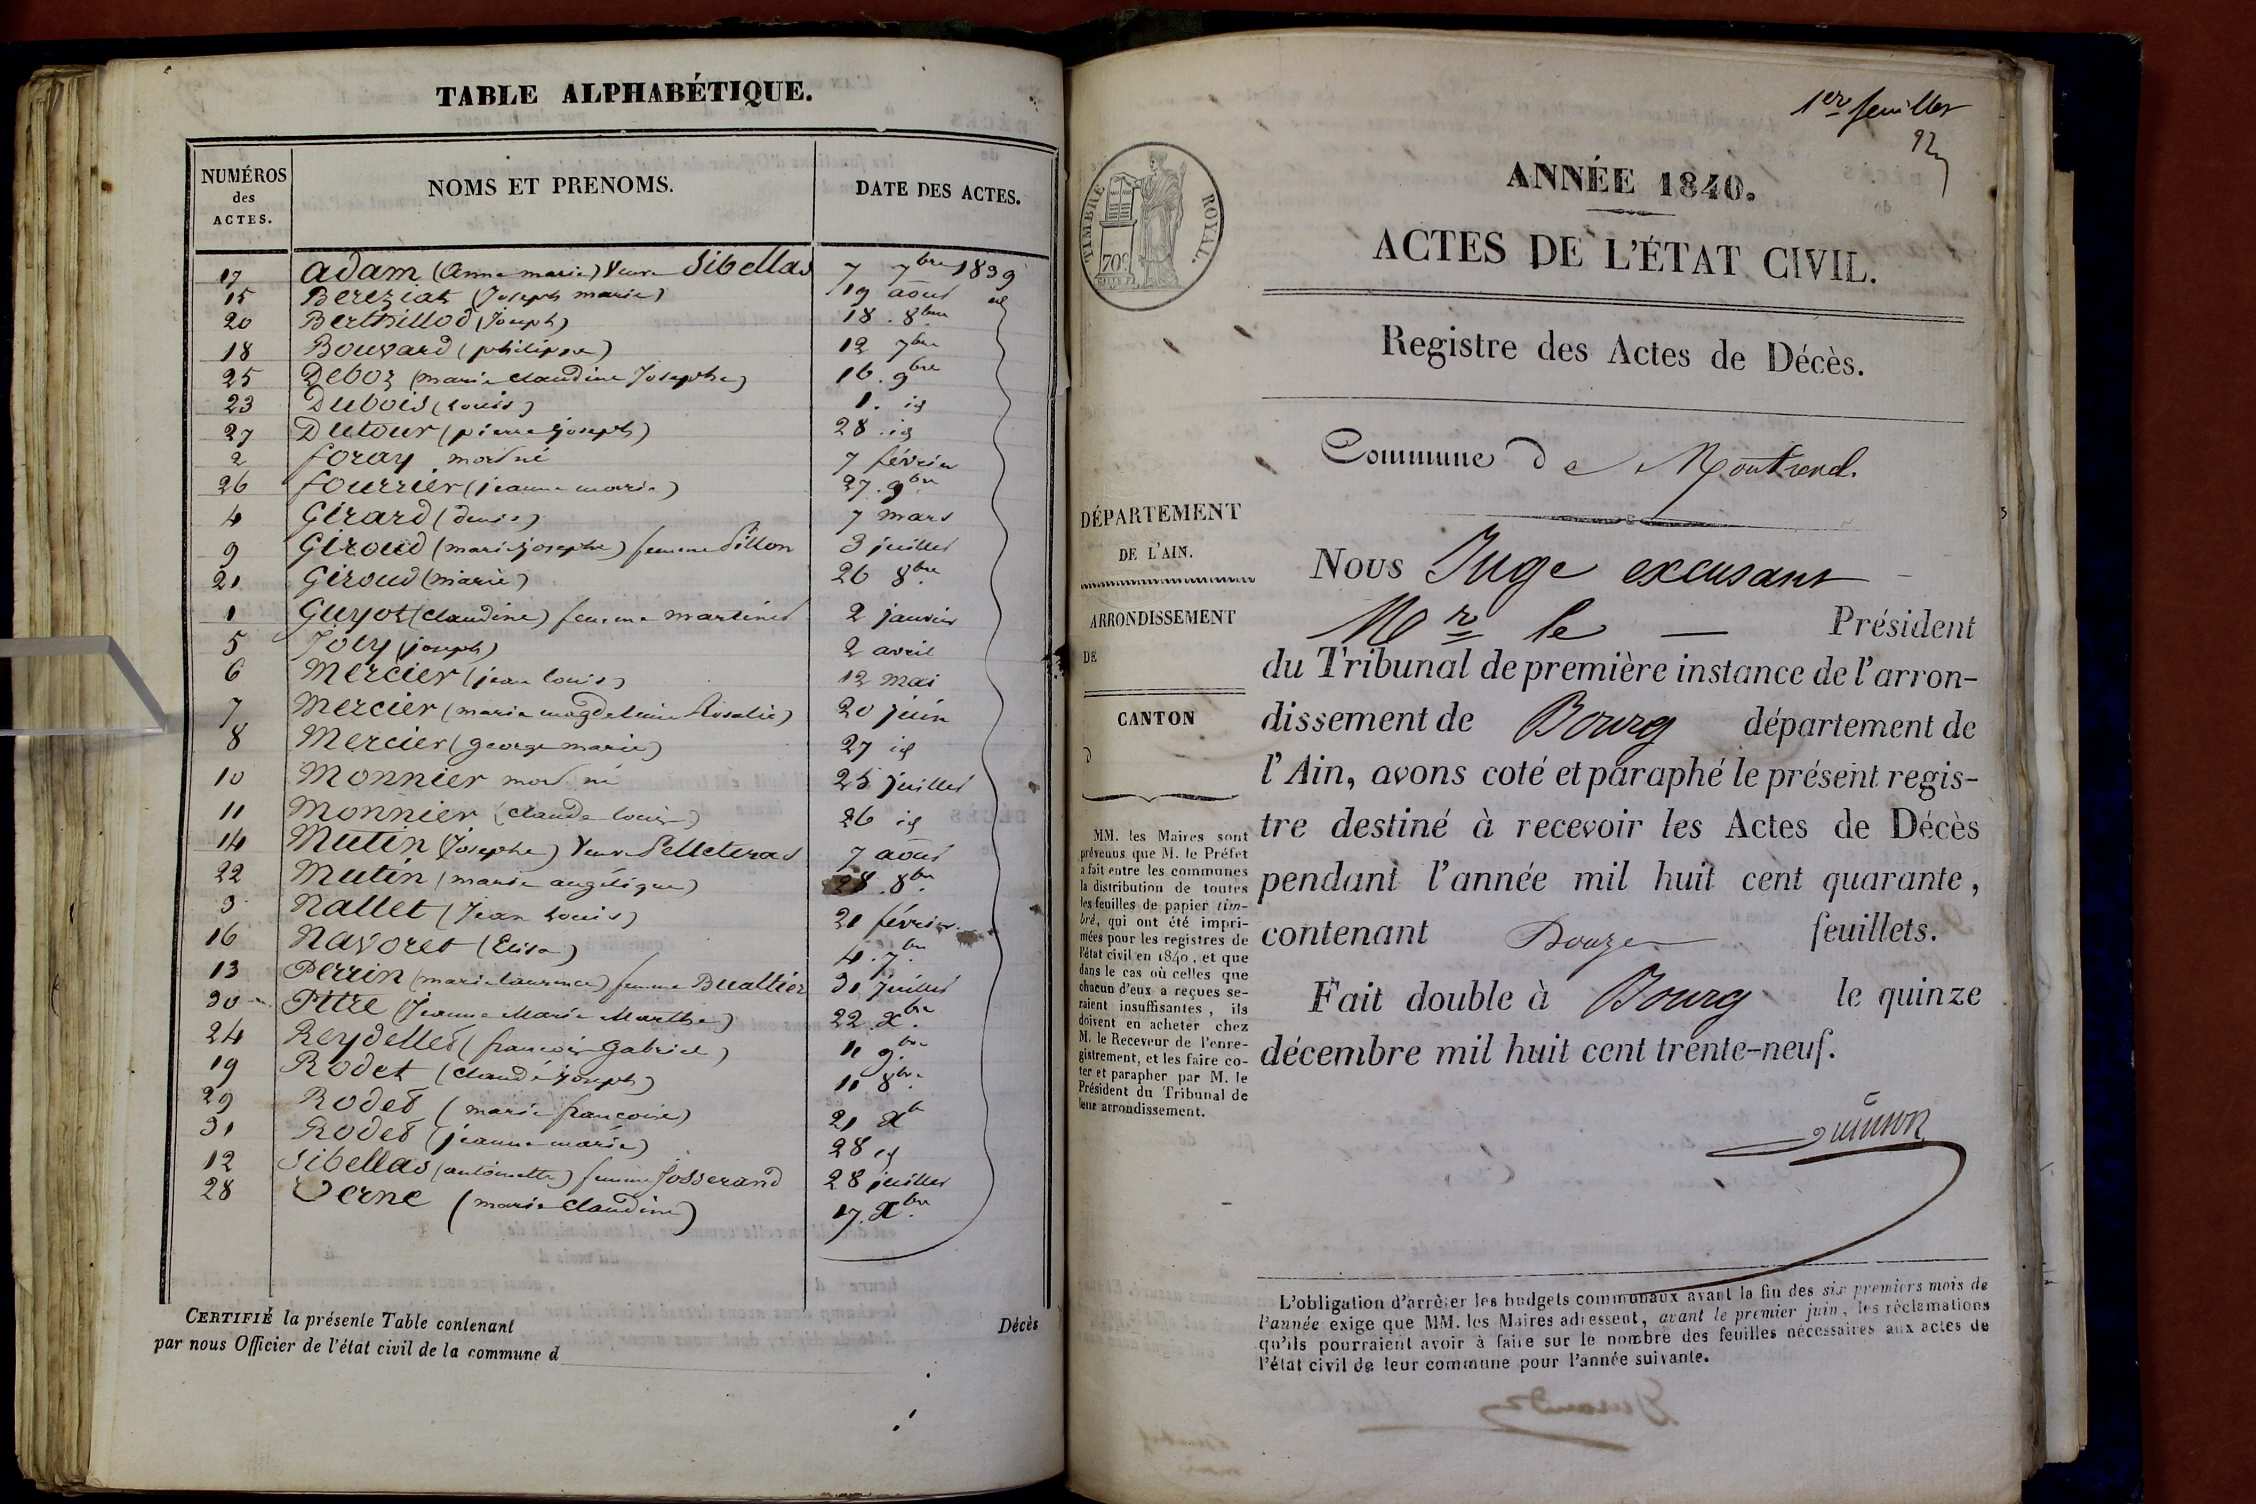 TABLE ALPHABÉTIQUE.
NUMÉROS des ACTES. NOMS ET PRENOMS. DATE DES ACTES.
17 Adam (Anne marie) Veuve Sibellas 7 7bre 1839
15 Bereziat (Joseph marie) 19 août id
20 Berthillod (Joseph) 18. 8bre
18 Bouvard (philippe) 12 7bre
25 Deboz (marie Claudine Josephe) 16. 9bre
23 Dubois (Louis) 1. id
27 Dutour (pierre joseph) 28. id
2 foray mort né 7 février
26 fourrier (jeanne marie) 27. 9bre
4 Girard (denis) 7 mars
9 Giroud (marie josephe) femme Pillon 3 juillet
21 Giroud (marie) 26 8bre
1 Guyot (Claudine) femme martinet 2 janvier
5 Joly (joseph) 2 avril
6 Mercier (jean louis) 12 mai
7 Mercier (marie magdeleine Rosalie) 20 juin
8 Mercier (george marie) 27 id
10 Monnier mort né 25 juillet
11 Monnier (Claude louis) 26 id
14 Mutin (Josephe) Veuve Pelleteras 7 août
22 Mutin (marie angélique) 28. 8bre
3 Nallet (Jean Louis) 21 février
16 Navoret (Elisa) 4. 7bre
13 Perrin (marie laurence) femme Buattier 31 juillet
30 Pitre (Jeanne Marie Marthe) 22. Xbre
24 Reydellet (françois Gabriel) 11 9bre
19 Rodet (Claude joseph) 11 8bre
29 Rodet (marie françoise) 21 Xb
31 Rodet (jeanne marie) 28 id
12 Sibellas (antoinette) femme Josserand 28 juillet
28 Verne (marie Claudine) 17. Xbre
CERTIFIÉ la présente Table contenant Décès
par nous Officier de l'état civil de la commune d
1er feuillet
TIMBRE ROYAL.
70c
ANNÉE 1840.
ACTES DE L'ÉTAT CIVIL.
Registre des Actes de Décès.
Commune de Montrevel.
DÉPARTEMENT
DE L'AIN.
ARRONDISSEMENT
DE
CANTON
D
MM. les Maires sont
prévenus que M. le Préfet
a fait entre les communes
la distribution de toutes
les feuilles de papier tim-
bré, qui ont été impri-
mées pour les registres de
l'état civil en 1840, et que
dans le cas où celles que
chacun d'eux a reçues se-
raient insuffisantes, ils
doivent en acheter chez
M. le Receveur de l'enre-
gistrement, et les faire co-
ter et parapher par M. le
Président du Tribunal de
leur arrondissement.
Nous Juge excusant
Mr le Président
du Tribunal de première instance de l'arron-
dissement de Bourg département de
l'Ain, avons coté et paraphé le présent regis-
tre destiné à recevoir les Actes de Décès
pendant l'année mil huit cent quarante,
contenant Douze feuillets.
Fait double à Bourg le quinze
décembre mil huit cent trente-neuf.
L'obligation d'arrêter les budgets communaux avant la fin des six premiers mois de
l'année exige que MM. les Maires adressent, avant le premier juin, les réclamations
qu'ils pourraient avoir à faire sur le nombre des feuilles nécessaires aux actes de
l'état civil de leur commune pour l'année suivante.